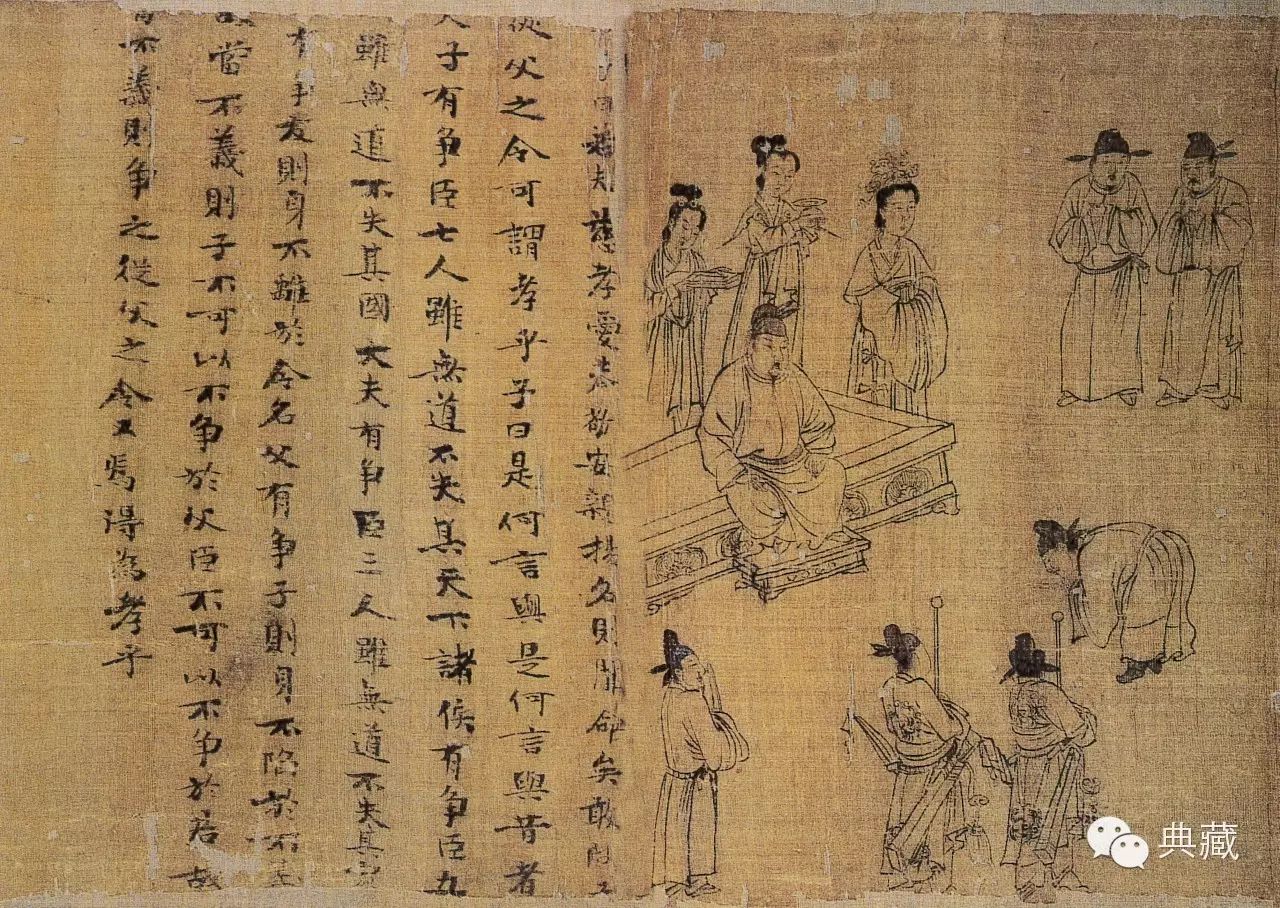 子曰若夫慈孝愛恭敬安親揚名則聞命矣敢問
從父之令可謂孝乎子曰是何言與是何言與昔者
天子有争臣七人雖無道不失其天下諸侯有争臣
雖無道不失其國大夫有争臣三人雖無道不失其家
有争友則身不離於令名父有争子則身不陷於不
當不義則子不可以不争於父臣不可以不争於君故
當不義則争之從父之令又焉得為孝乎
典藏